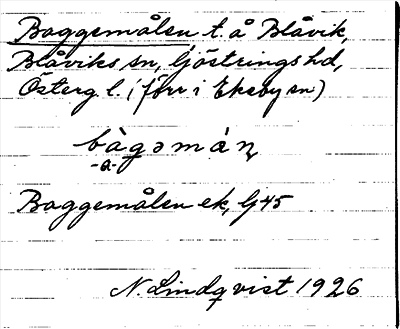 Baggemålen t. å Blåvik,
Blåviks sn, Göstrings hd,
Österg l. (förr i Ekeby sn)
bàgəmàn
-a-
Baggemålen ek, G 45
N. Lindqvist 1926